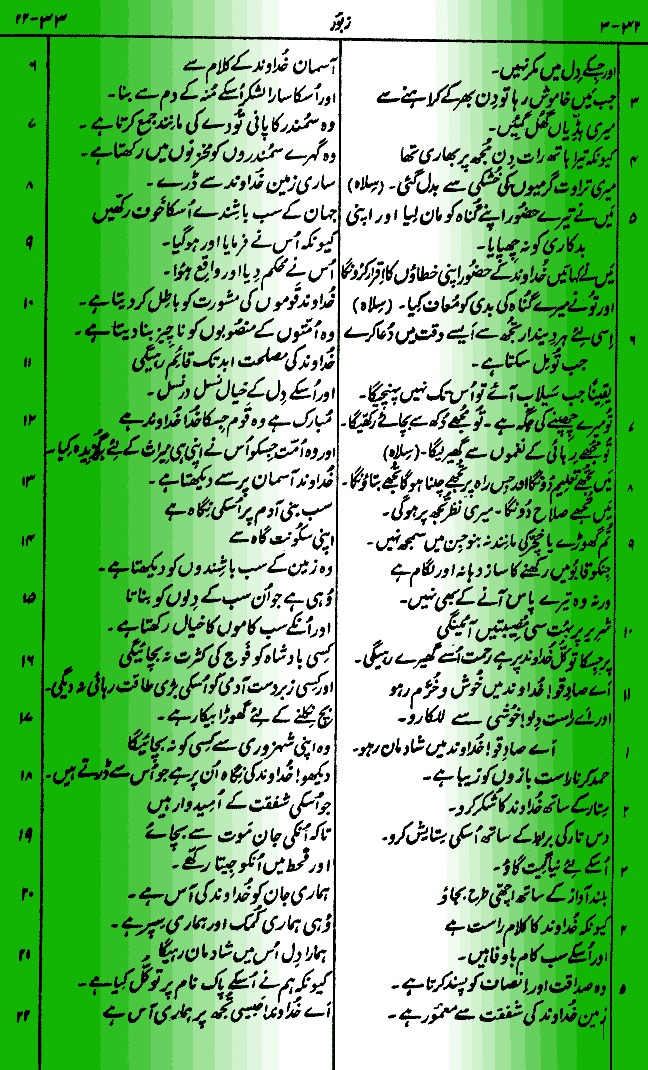 ۳-۳۲
زبُور
۲۲-۳۳
اور جِسکے دِل میں مکر نہیں۔
۳ جب مَیں خاموش رہا تو دِن بھر کے کراہنے سے
میری ہڈیاں گھُل گئِیں۔
۴ کیونکہ تیرا ہاتھ رات دِن مُجھ پر بھاری تھا
میری تراوت گرمیوں کی خُشکی سے بدل گئی۔ (سِلاہ)
۵ مَیں نے تیرے حضُور اپنے گُناہ کو مان لِیا اور اپنی
بدکاری کو نہ چھپایا۔
مَیں نے کہا مَیں خُداوند کے حضُور اپنی خطاؤں کا اِقرار کرُونگا
اور تُو نے میرے گُناہ کی بدی کو مُعاف کِیا۔ (سِلاہ)
۶ اِسی لِئے ہر دِیندار تُجھ سے اَیسے وقت میں دُعا کرے
جب تُو مِل سکتا ہے۔
یقیناً جب سَیلاب آئے تو اُس تک نہیں پہنچیگا۔
۷ تُو میرے چھِپنے کی جگہ ہے۔ تُو مُجھے دُکھ سے بچائے رکھیگا۔
تُو مُجھے رہائی کے نغموں سے گھیر لیگا۔ (سِلاہ)
۸ مَیں تُجھے تعلِیم دُونگا اور جِس راہ پر تُجھے چلنا ہوگا تُجھے بتاؤنگا۔
مَیں تُجھے صلاح دُونگا۔ میری نظر تُجھ پر ہوگی۔
۹ تُم گھوڑے یا خچر کی مانِند نہ بنو جِن میں سمجھ نہیں۔
جِنکو قابُو میں رکھنے کا ساز دہانہ اور لگام ہے
ورنہ وہ تیرے پاس آنے کے بھی نہیں۔
۱۰ شرِیر پر بہُت سی مُصِیبتیں آئینگی
پر جِسکا توکُّل خُداوند پر ہے رحمت اُسے گھیرے رہیگی۔
۱۱ اَے صادِقو! خُداوند میں خُوش و خُرّم رہو
اور اَے راست دِلو! خُوشی سے للکارو۔
۱ اَے صادِقو! خُداوند میں شادمان رہو۔
حمد کرنا راست بازوں کو زیبا ہے۔
۲ سِتار کے ساتھ خُداوند کا شُکر کرو۔
دس تار کی بربط کے ساتھ اُسکی سِتایش کرو۔
۳ اُسکے لِئے نیا گِیت گاؤ۔
بُلند آواز کے ساتھ اچھّی طرح بجاؤ
۴ کیونکہ خُداوند کا کلام راست ہے
اور اُسکے سب کام باوفا ہیں۔
۵ وہ صداقت اور اِنصاف کو پسند کرتا ہے۔
زمِین خُداوند کی شفقت سے معمُور ہے۔
۶ آسمان خُداوند کے کلام سے
اور اُسکا سارا لشکر اُسکے مُنہ کے دم سے بنا۔
۷ وہ سمُندر کا پانی تُودے کی مانِند جمع کرتا ہے۔
وہ گہرے سمُندروں کو مخزنوں میں رکھتا ہے۔
۸ ساری زمِین خُداوند سے ڈرے۔
جہان کے سب باشِندے اُسکا خَوف رکھّیں
۹ کیونکہ اُس نے فرمایا اور ہو گیا۔
اُس نے حُکم دِیا اور واقِع ہُؤا۔
۱۰ خُداوند قَوموں کی مشورت کو باطِل کر دیتا ہے۔
وہ اُمّتوں کے منصُوبوں کو ناچِیز بنا دیتا ہے۔
۱۱ خُداوند کی مصلحت ابد تک قائِم رہیگی
اور اُسکے دِل کے خیال نسل در نسل۔
۱۲ مُبارک ہے وہ قَوم جِسکا خُدا خُداوند ہے
اور وہ اُمّت جِسکو اُس نے اپنی ہی مِیراث کے لِئے برگُزِیدہ کِیا۔
۱۳ خُداوند آسمان پر سے دیکھتا ہے۔
سب بنی آدم پر اُسکی نِگاہ ہے
۱۴ اپنی سکُونت گاہ سے
وہ زمِین کے سب باشِندوں کو دیکھتا ہے۔
۱۵ وُہی ہے جو اُن سب کے دِلوں کو بناتا
اور اُنکے سب کاموں کا خیال رکھتا ہے۔
۱۶ کِسی بادشاہ کو فَوج کی کثرت نہ بچائیگی
اور کِسی زبردست آدمی کو اُسکی بڑی طاقت رہائی نہ دیگی۔
۱۷ بچ نِکلنے کے لِئے گھوڑا بیکار ہے۔
وہ اپنی شہ زوری سے کِسی کو نہ بچائیگا
۱۸ دیکھو! خُداوند کی نِگاہ اُن پر ہے جو اُس سے ڈرتے ہیں۔
جو اُسکی شفقت کے اُمِیدوار ہیں
۱۹ تاکہ اُنکی جان مَوت سے بچائے
اور قحط میں اُنکو جِیتا رکھّے۔
۲۰ ہماری جان کو خُداوند کی آس ہے۔
وُہی ہماری کُمک اور ہماری سِپر ہے۔
۲۱ ہمارا دِل اُس میں شادمان رہیگا
کیونکہ ہم نے اُسکے پاک نام پر توکُّل کِیا ہے۔
۲۲ اَے خُداوند! جَیسی تُجھ پر ہماری آس ہے